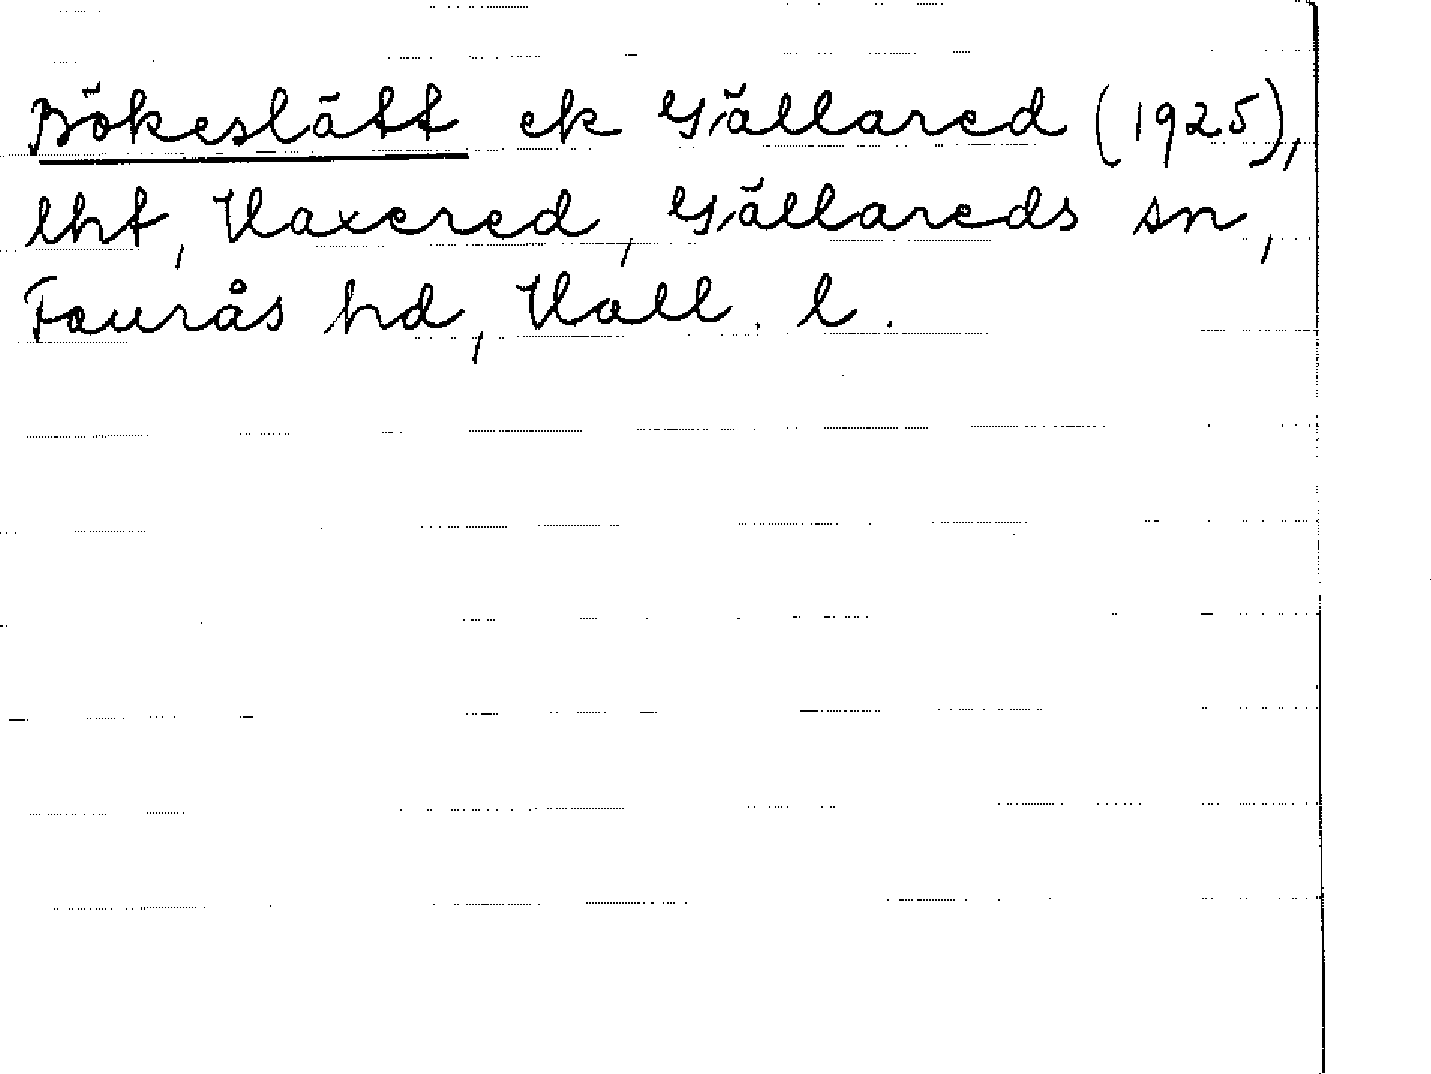 Bökeslätt ek Gällared (1925),
lht, Haxered, Gällareds sn,
Faurås hd, Hall. l.